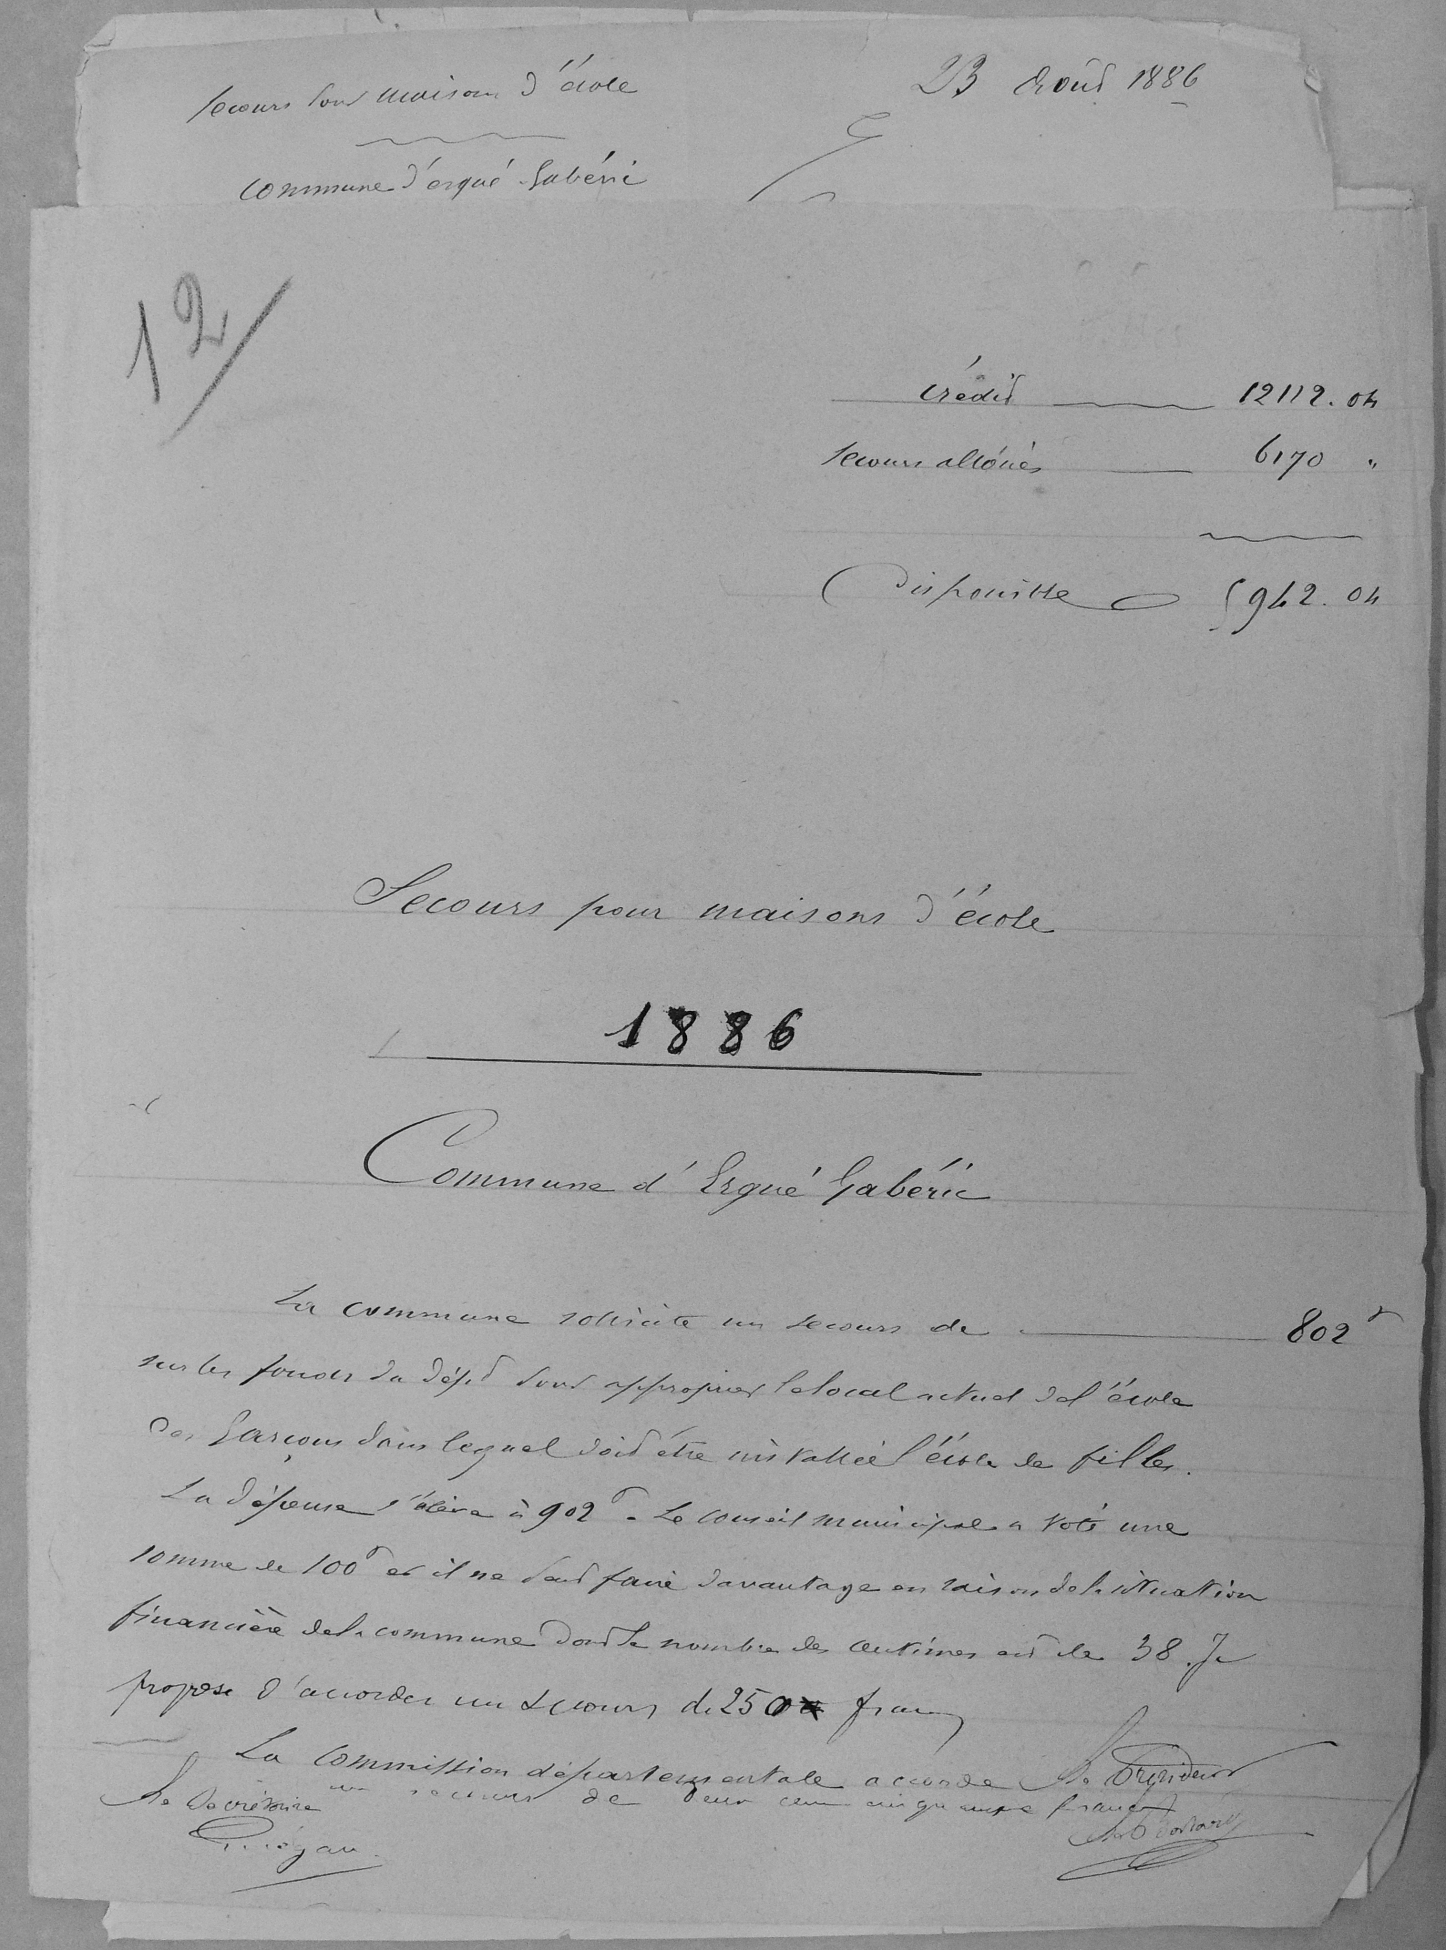 Secours pour maison d'école
23 Août 1886
commune d'ergué-Gabéric
12
crédit 12112.04
secours alloués 6170 "
Disponible 5942.04
Secours pour maisons d'école
1886
Commune d'Ergué Gabéric
La commune sollicite un secours de 802 f
sur les fonds du dépt pour approprier le local actuel de l'école
des garçons dans lequel doit être installée l'école de filles.
La dépense s'élève à 902 f. Le conseil municipal a voté une
somme de 100 f et il ne peut faire davantage en raison de la situation
financière de la commune dont le nombre des centimes est de 38. Je
propose d'accorder un secours de 250 francs
La commission départementale accorde
un secours de deux cent cinquante francs
Le Président
Le Secrétaire